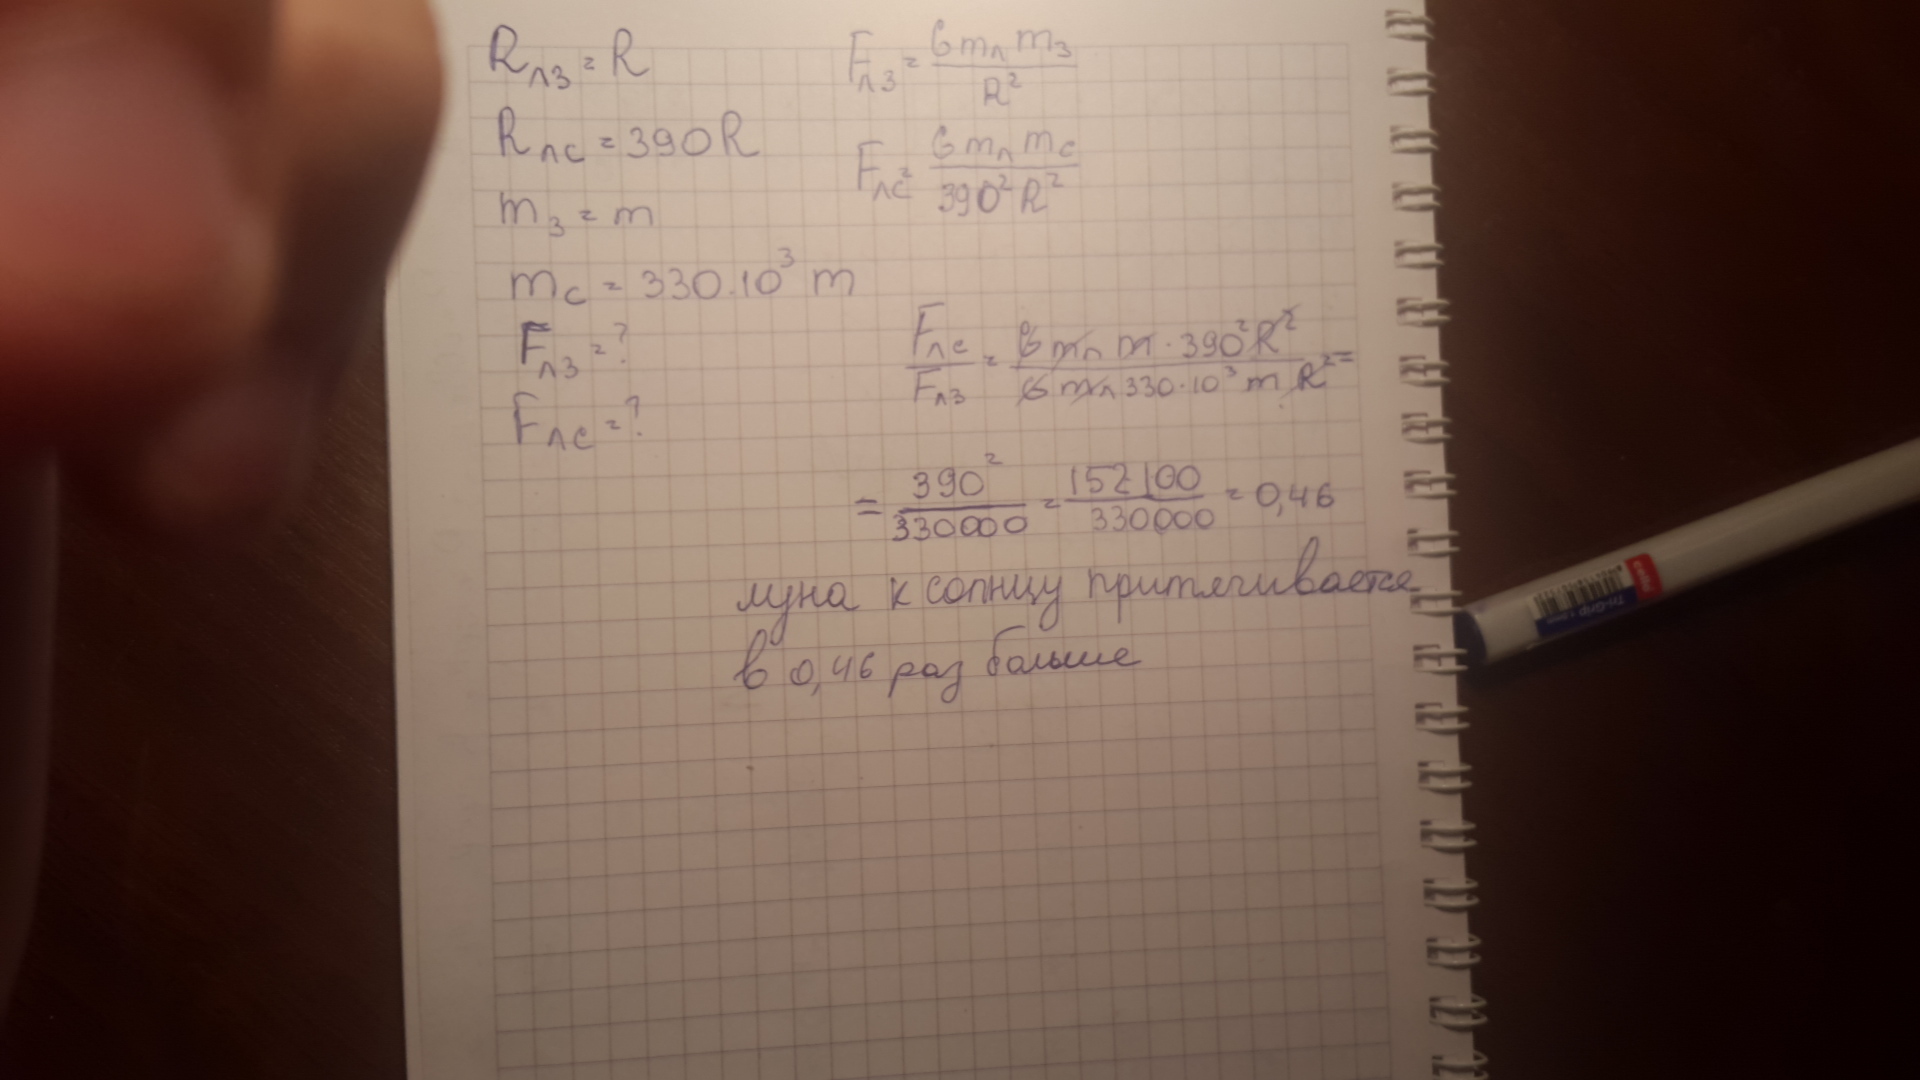 Rлз = R
Rлс = 390R
mз = m
mс = 330·10³ m
Fлз = ?
Fлс = ?
Fлз = G mл mз / R²
Fлс = G mл mс / 390² R²
Fлс / Fлз = G mл m · 390² R² / G mл 330·10³ m R² =
= 390² / 330000 = 152100 / 330000 = 0,46
луна к солнцу притягивается
в 0,46 раз больше
cello
Tri-Grip